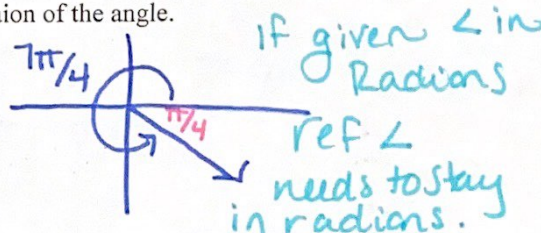 ion of the angle.
7π/4
π/4
If given ∠ in
Radians
ref ∠
needs to stay
in radians.